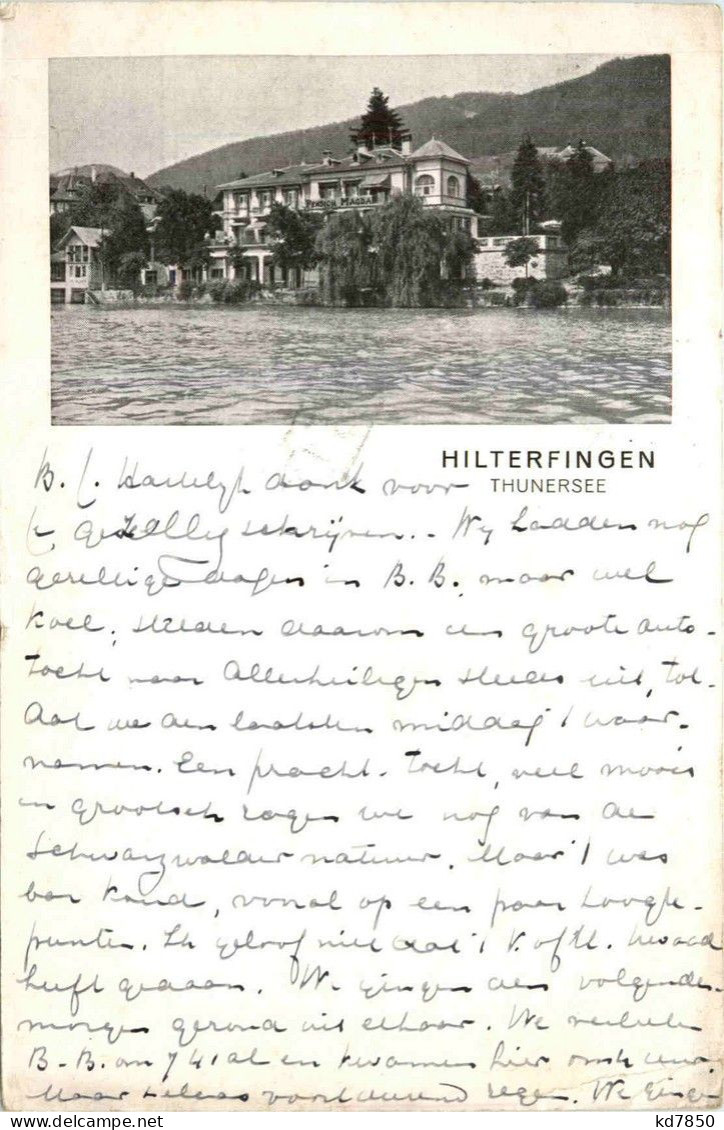 PENSION MAGDA
HILTERFINGEN
THUNERSEE
B. C. Hartelijk dank voor
gezellig schrijven.. Wij hadden nog
gezellige dagen in B. B., maar wel
koel; stelden daarom een groote auto-
tocht naar Allerheiligen steeds uit, tot-
dat we den laatsten middag 't waar-
namen. Een pracht-tocht, veel moois
en grootsch zagen we nog van de
Schwarzwalder natuur. Maar 't was
bar koud, vooral op een paar hoogte-
punten. Ik geloof niet dat 't kwaad
heeft gedaan. We gingen den volgenden
morgen gezond uit elkaar. We verlieten
B-B. om 7 41 al en kwamen hier
Maar helaas voortdurend regen. We gingen
kd7850